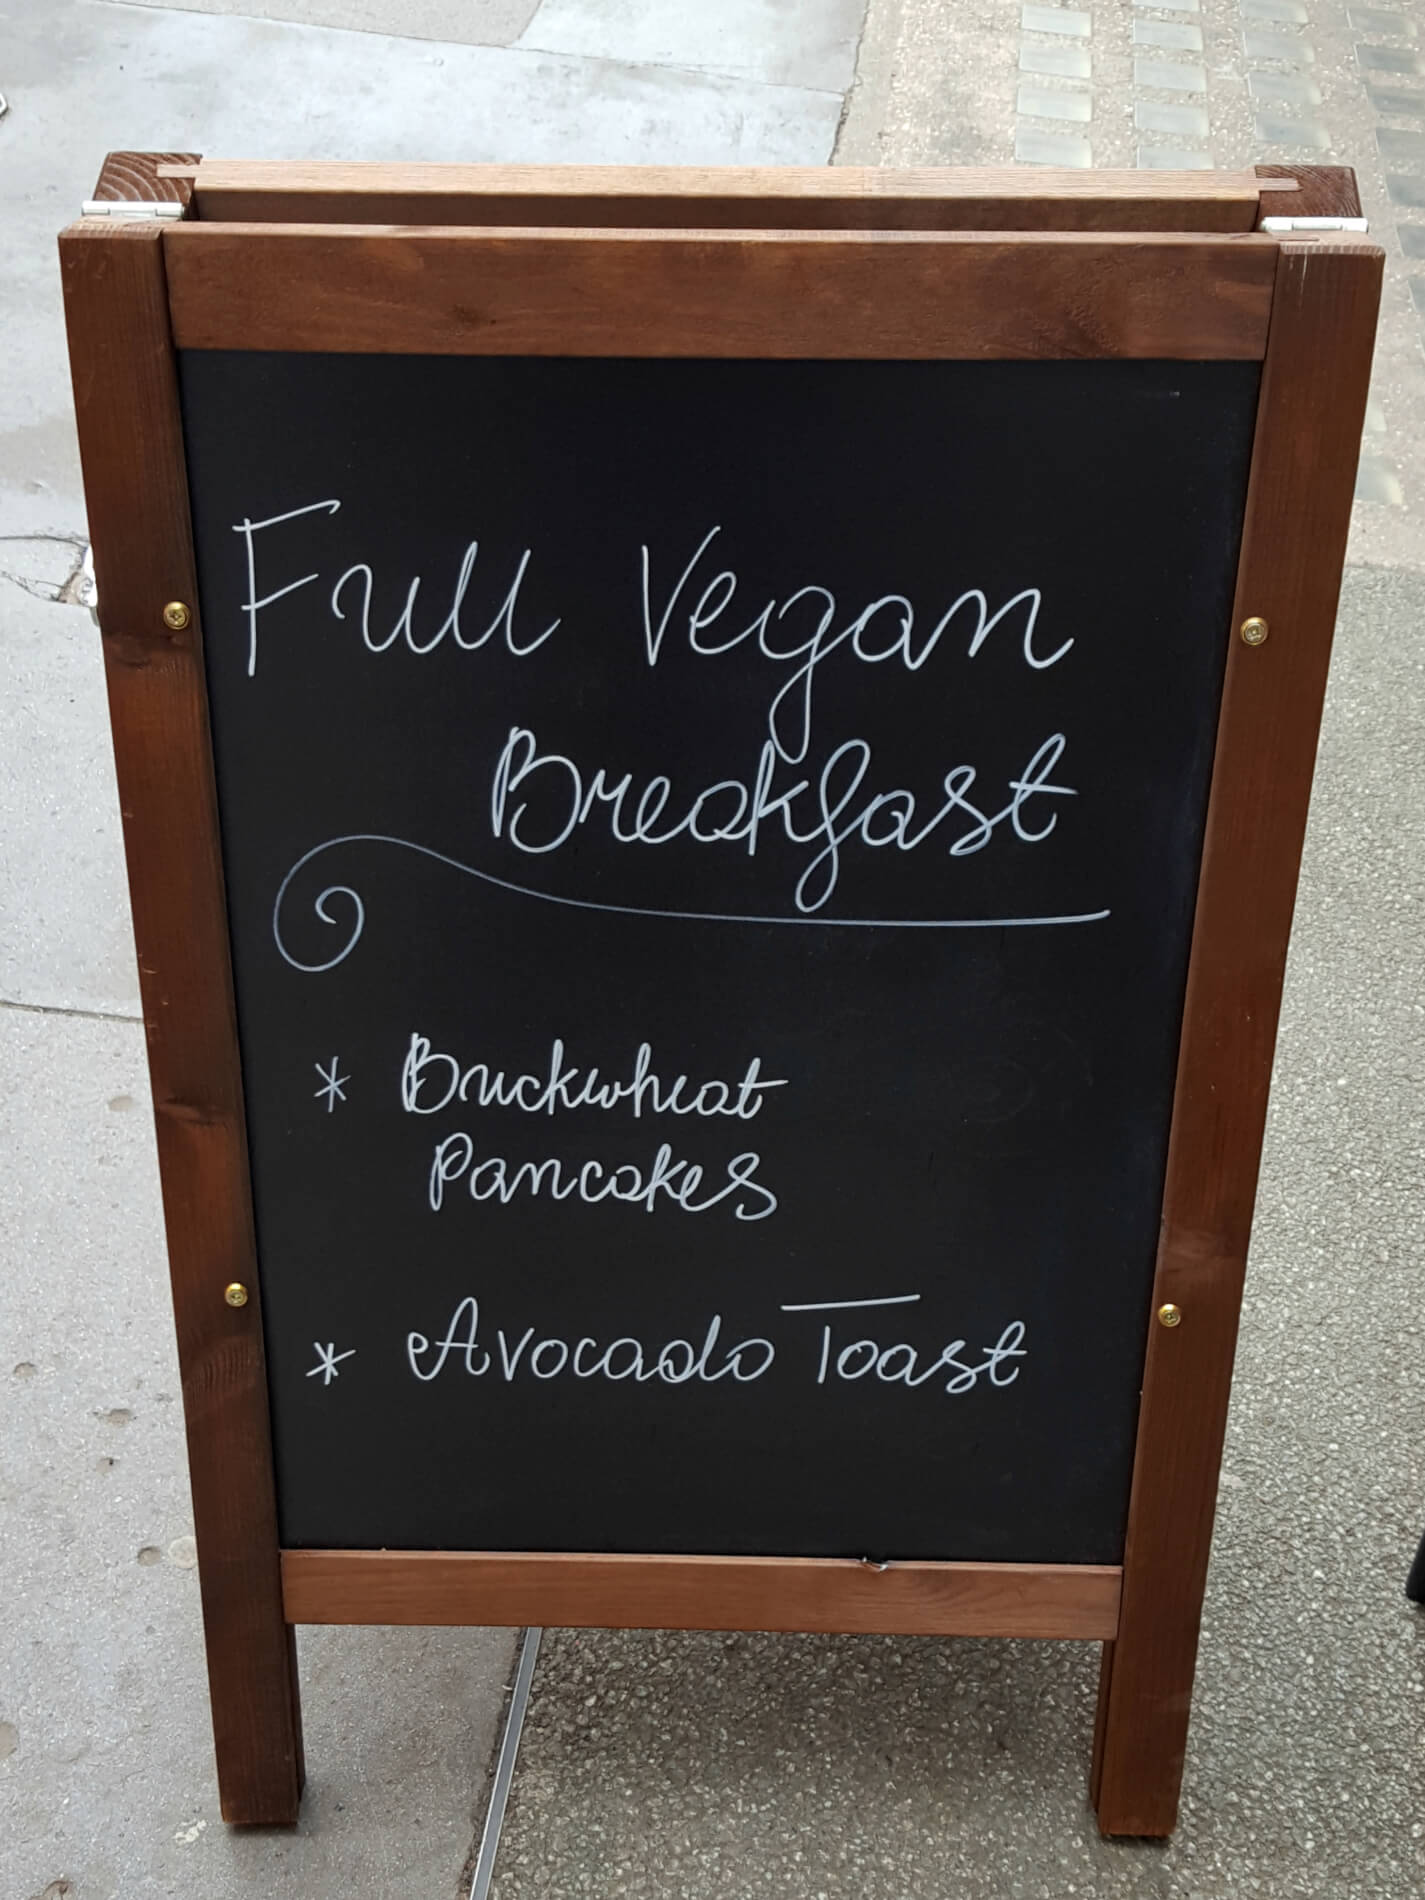 Full Vegan
Breakfast
* Buckwheat
Pancakes
* Avocado Toast